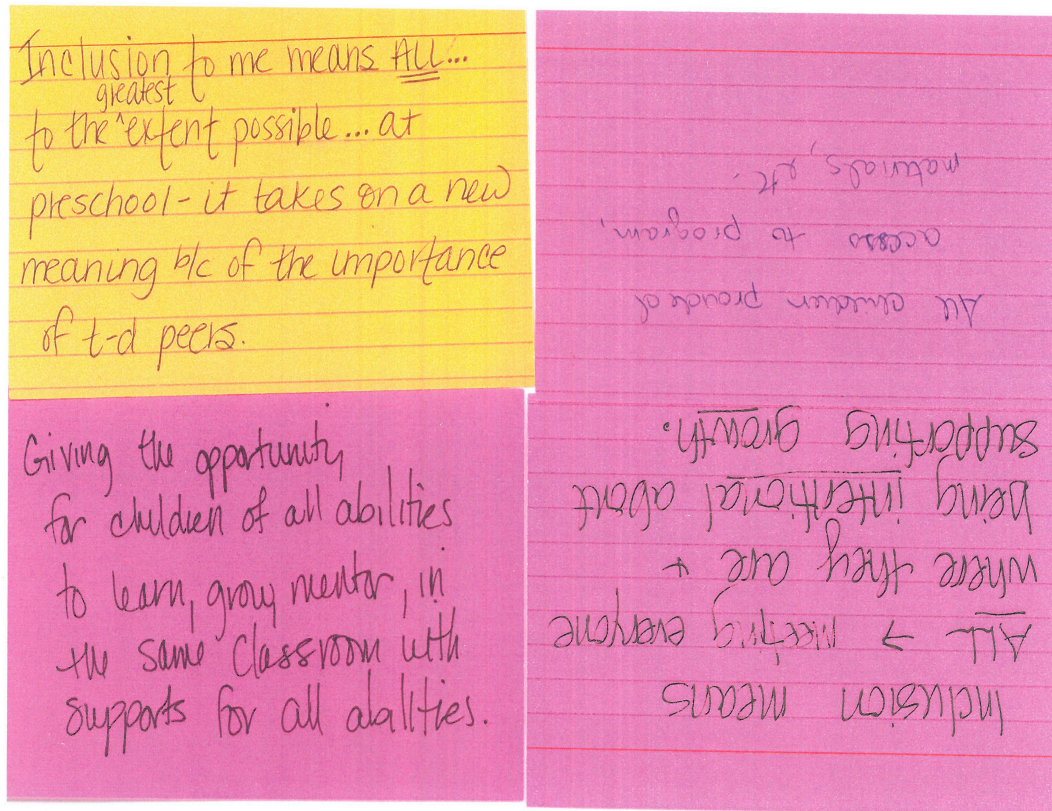 Inclusion to me means ALL...
to the ^greatest extent possible... at
preschool - it takes on a new
meaning b/c of the importance
of t-d peers.
All children provided
access to program,
materials, etc.
Giving the opportunity
for children of all abilities
to learn, grow, mentor, in
the same classroom with
supports for all abalities.
Inclusion means
ALL → meeting everyone
where they are +
being intentional about
supporting growth.